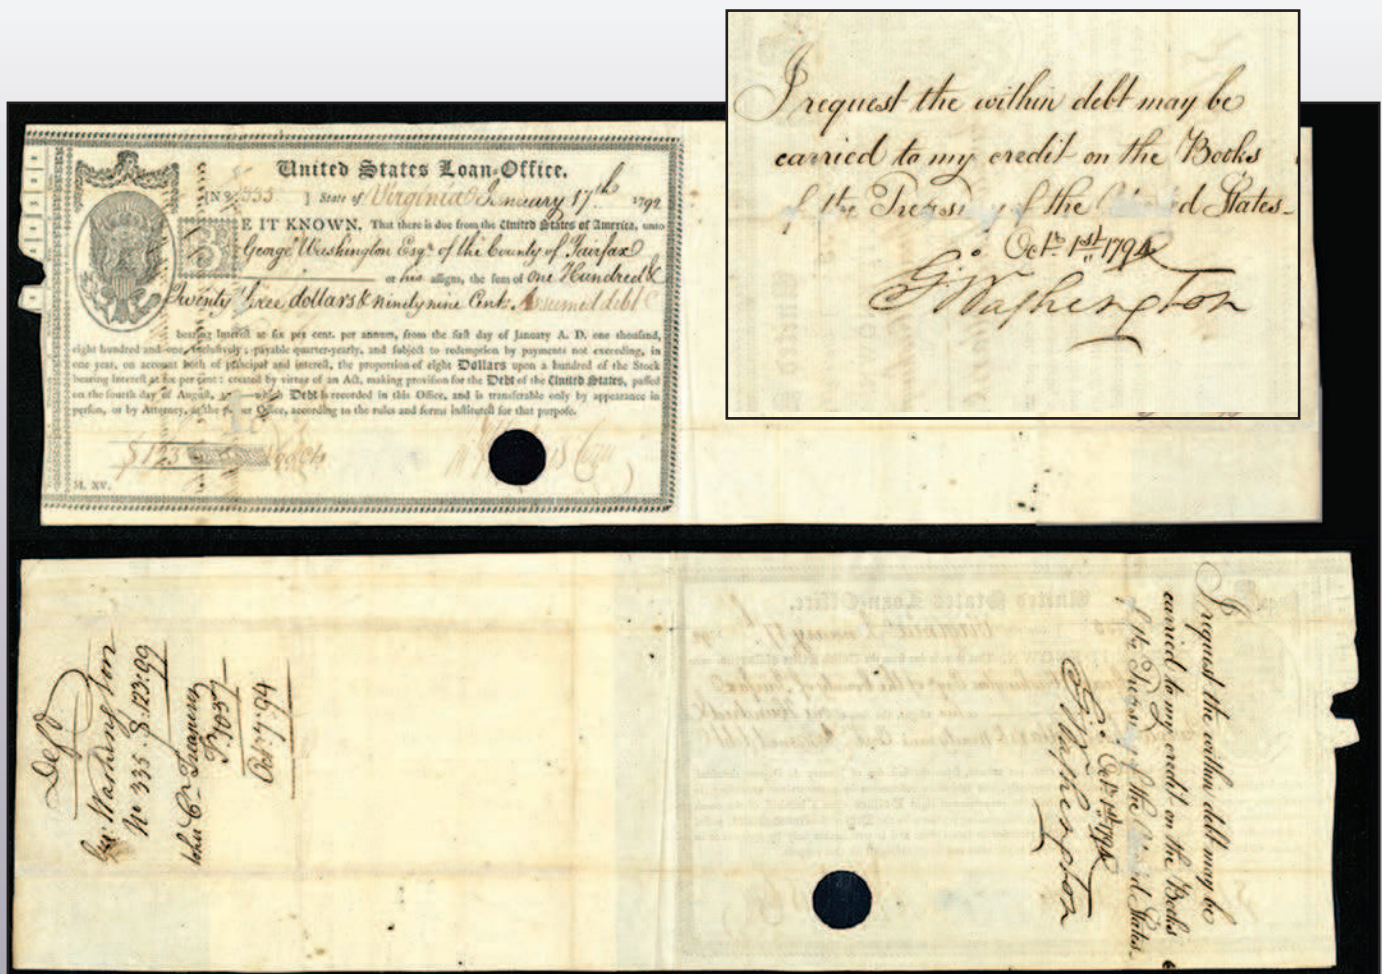 I request the within debt may be
carried to my credit on the Books
of the Treasury of the United States.
Octr. 1st 1794
Go: Washington
United States Loan-Office.
[No 335 ] State of Virginia January 17th 1792
BE IT KNOWN, That there is due from the United States of America, unto
George Washington Esqr. of the County of Fairfax
or his assigns, the sum of One Hundred &
Twenty three dollars & ninety nine Cents. Assumed debt
bearing Interest at six per cent. per annum, from the first day of January A. D. one thousand,
eight hundred and one, inclusively; payable quarter-yearly, and subject to redemption by payments not exceeding, in
one year, on account both of principal and interest, the proportion of eight Dollars upon a hundred of the Stock
bearing Interest at six per cent: created by virtue of an Act, making provision for the Debt of the United States, passed
on the fourth day of August, which Debt is recorded in this Office, and is transferable only by appearance in
person, or by Attorney, at the proper Office, according to the rules and forms instituted for that purpose.
$ 123
M. XV.
Defd
Geo: Washington
No 335. $:123:99
P. 1037
Oct. 7. 94
I request the within debt may be
carried to my credit on the Books
of the Treasury of the United States.
Octr. 1st 1794
Go: Washington